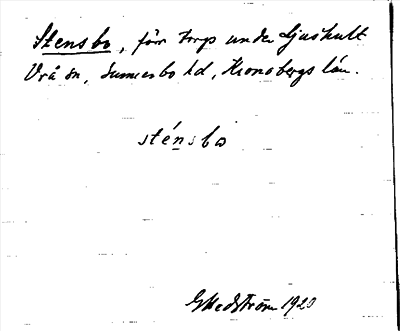 Stensbo, förr torp under Ljushult
Vrå sn, Sunnerbo hd, Kronobergs län.
sténsbo
GHedström 1920